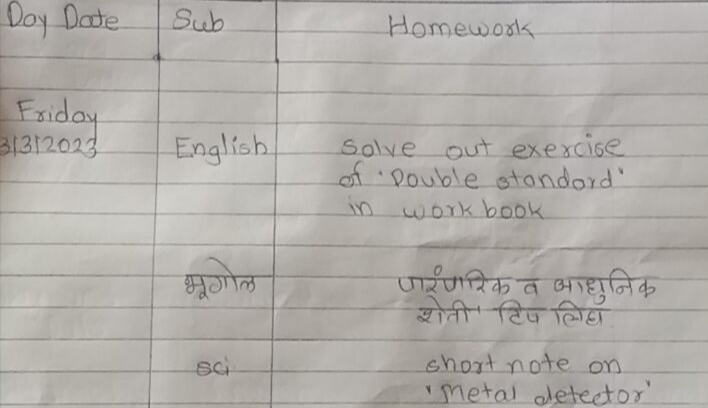 Day Date Sub Homework
Friday
3/3/2023 English solve out exercise
of 'Double standard'
in workbook
भूगोल पारंपारिक व आधुनिक
शेती' टिप लिहा
sci short note on
'metal detector'